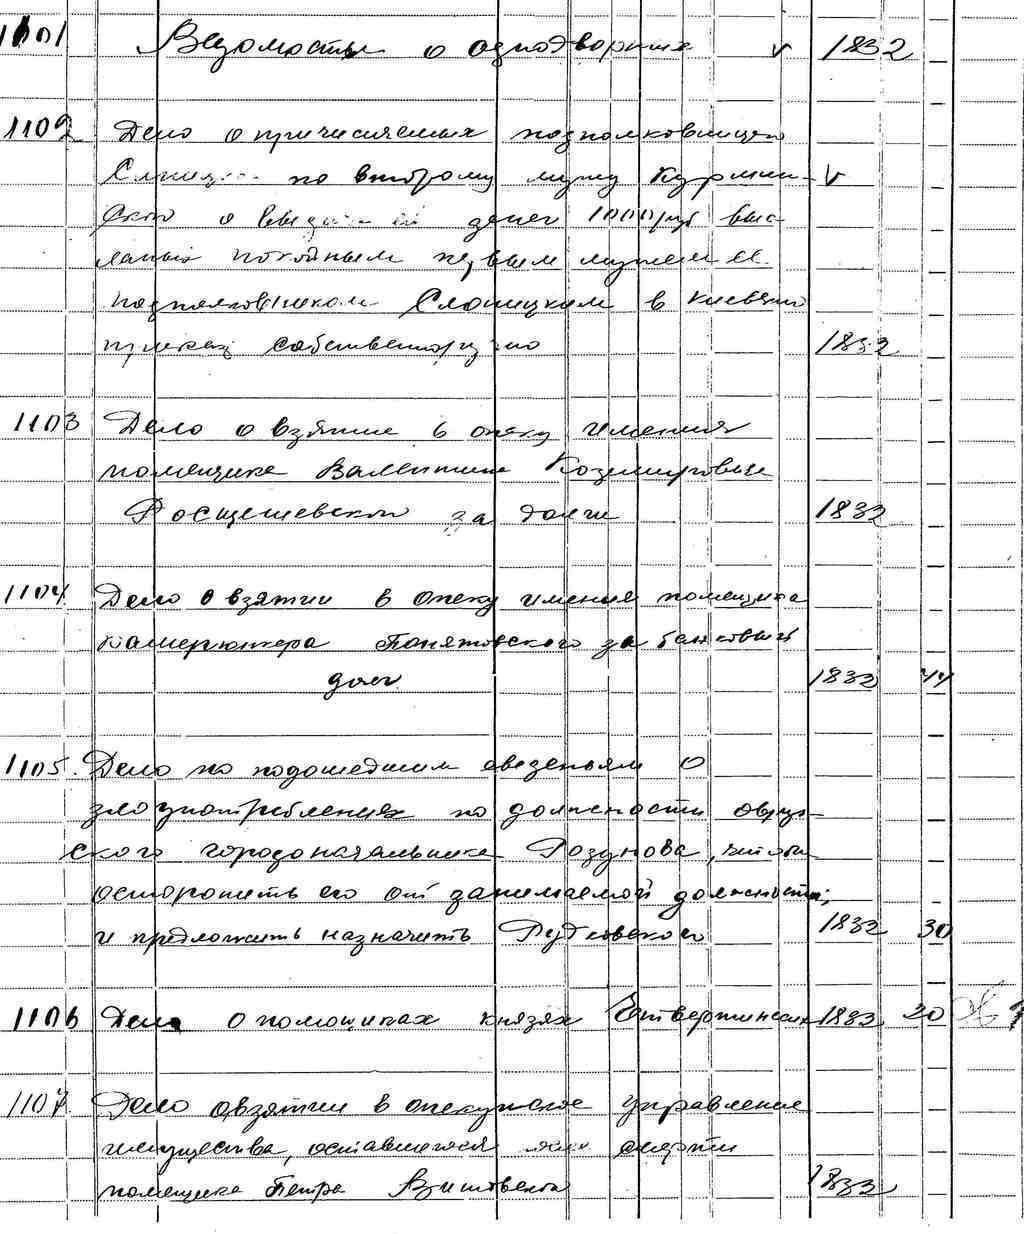 1101 Ведомость о однодворцах v 1832
1102 Дело о причислении подполковницею
по второму мужу Курмин- v
ского о денег 1000 руб выс-
ланых покойным первым мужем ее
подполковником Слоницким в Киевский
приказ собственноручно 1832
1103 Дело о взятие в опеку имения
помещика Валентина Козимировича
Росцешевского за долги 1832
1104 Дело о взятии в опеку имение помещика
камерюнкера Понятовского за банковый
долг 1832 44
1105. Дело по подошедшим сведеньям о
злоупотреблениях по должности овруч-
ского городоначальника Розунова, чтобы
осторонить его от занимаемой должности,
и предложить назначить Рудковского 1832 30
1106 Дело о помощиках князях Четвертинских 1832 20
1107 Дело о взятии в опекунское управление
имущества, оставшегося после смерти
помещика Петра 1832